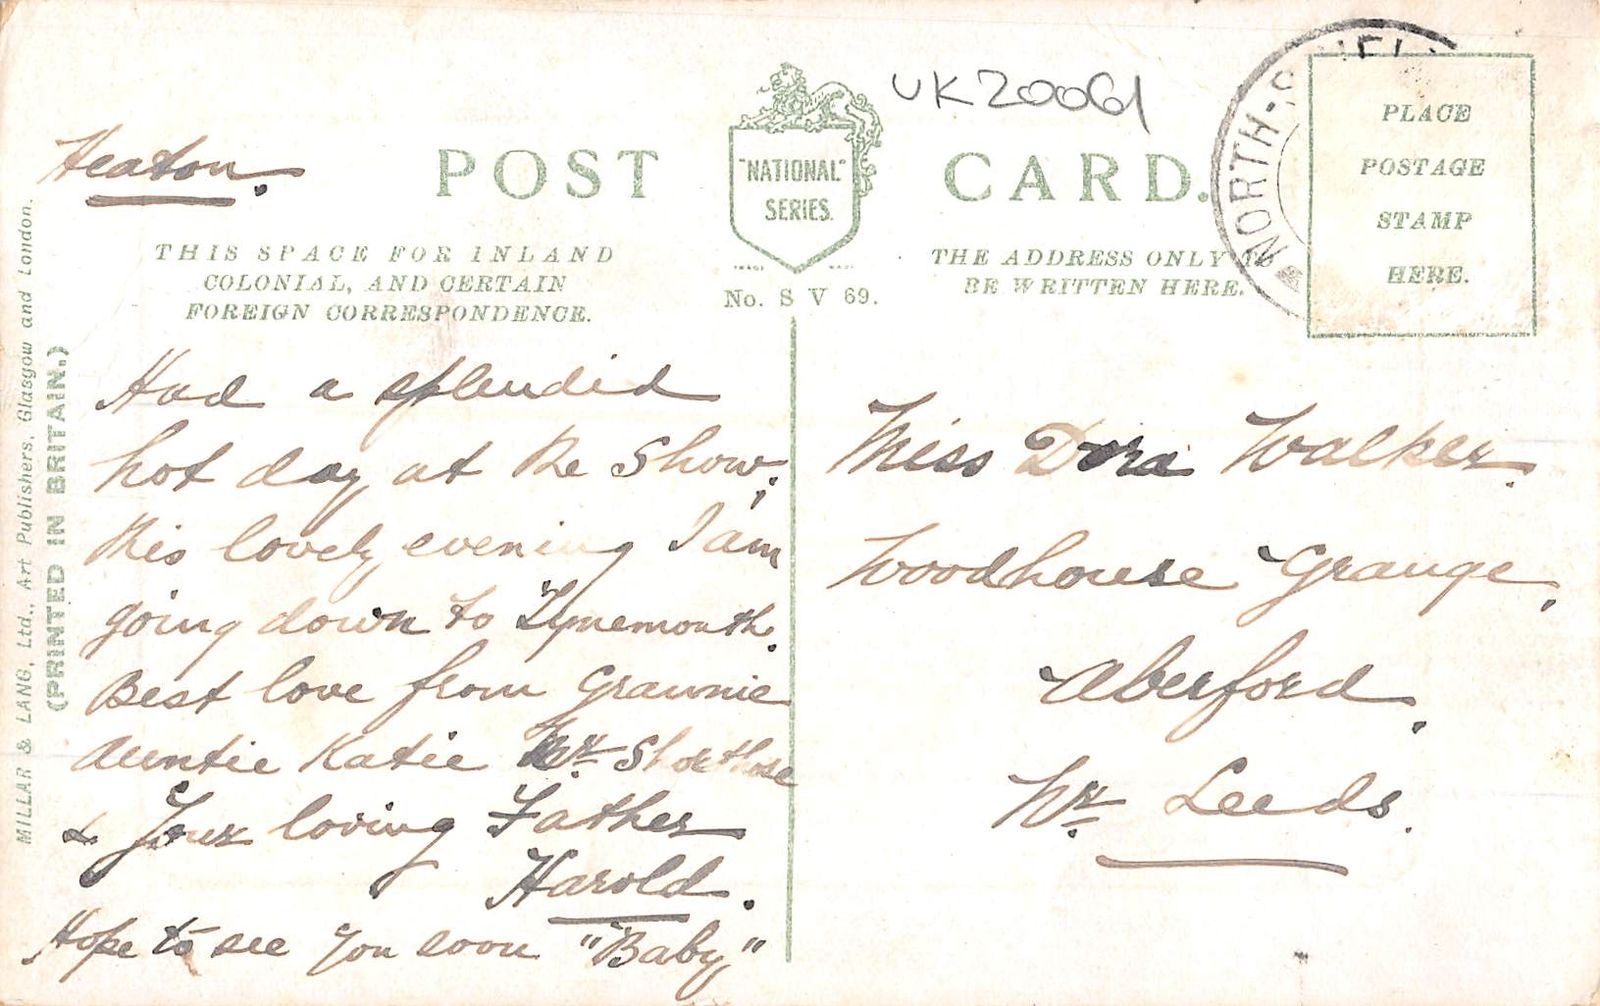 UK20061
NORTH-S
Heaton.
POST CARD.
"NATIONAL"
SERIES.
TRADE MARK
No. S V 69.
THIS SPACE FOR INLAND
COLONIAL, AND CERTAIN
FOREIGN CORRESPONDENCE.
THE ADDRESS ONLY TO
BE WRITTEN HERE.
PLACE
POSTAGE
STAMP
HERE.
MILLAR & LANG, Ltd., Art Publishers, Glasgow and London.
(PRINTED IN BRITAIN.)
Had a splendid
hot day at the Show,
this lovely evening I am
going down to Tynemouth.
Best love from Grannie
Auntie Katie Mr Shorthose
& Your loving Father
Harold.
Hope to see you soon "Baby"
Miss Dora Walker.
Woodhouse Grange,
Aberford,
Nr. Leeds.